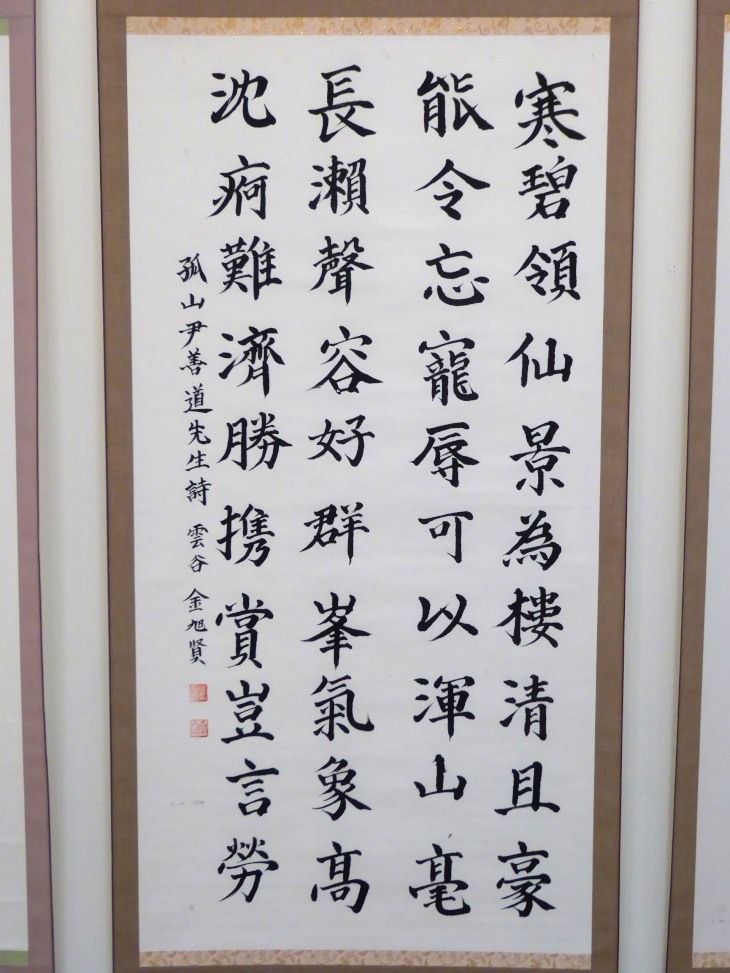 寒碧領仙景為樓清且豪
能令忘寵辱可以渾山毫
長瀨聲容好群峯氣象高
沈痾難濟勝携賞豈言勞
孤山尹善道先生詩 雲谷 金旭賢